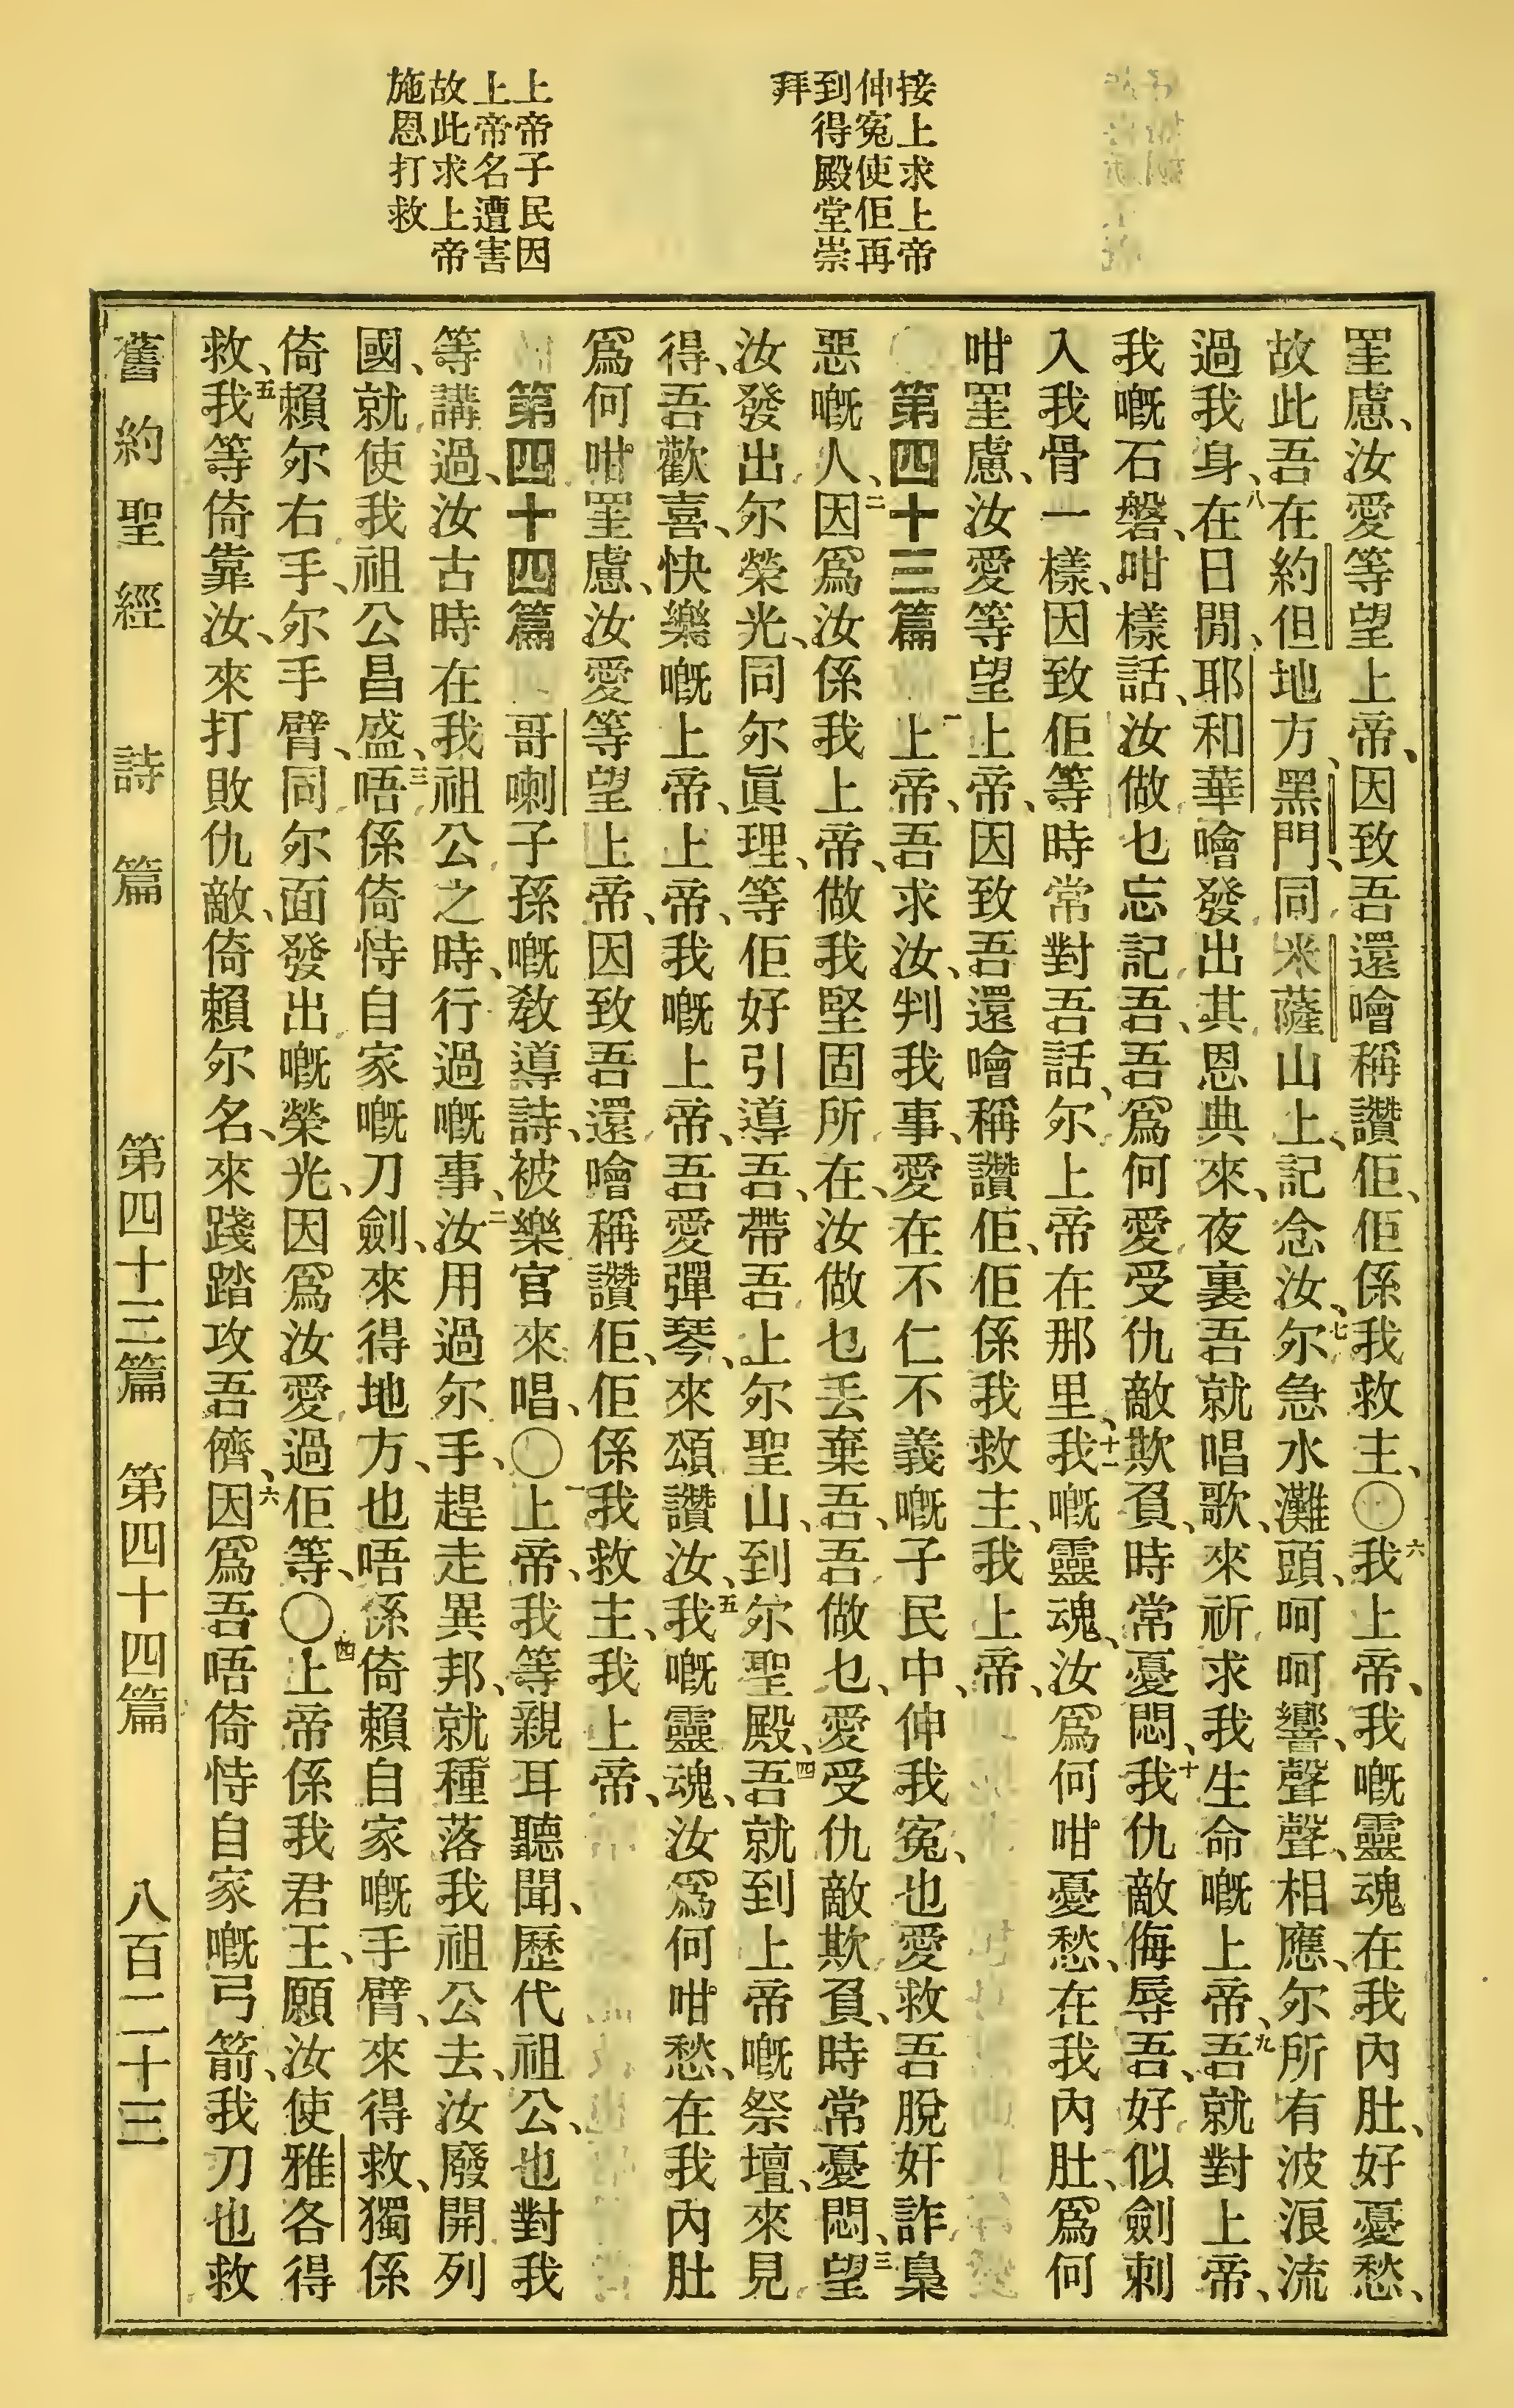 接上求上帝
伸寃使佢再
到得殿堂崇
拜
上帝子民因
上帝名遭害
故此求上帝
施恩打救
罣慮、汝愛等望上帝、因致吾還噲稱讚佢、佢係我救主、〇六我上帝、我嘅靈魂在我內肚、好憂愁、
故此吾在約但地方、黑門、同米薩山上、記念汝、七尔急水灘頭、呵呵響、聲聲相應、尔所有波浪流
過我身、八在日閒、耶和華噲發出其恩典來、夜裏吾就唱歌、來祈求我生命嘅上帝、九吾就對上帝、
我嘅石磐、咁樣話、汝做乜忘記吾、吾爲何愛受仇敵欺負、時常憂悶、十我仇敵侮辱吾、好似劍刺
入我骨一樣、因致佢等時常對吾話、尔上帝在那里、十一我嘅靈魂、汝爲何咁憂愁、在我內肚、爲何
咁罣慮、汝愛等望上帝、因致吾還噲稱讚佢、佢係我救主、我上帝、
第四十三篇 一上帝、吾求汝、判我事、愛在不仁不義嘅子民中、伸我寃、也愛救吾脫奸詐梟
惡嘅人、二因爲汝係我上帝、做我堅固所在、汝做乜丟棄吾、吾做乜、愛受仇敵欺負、時常憂悶、三望
汝發出尔榮光、同尔眞理、等佢好引導吾、帶吾上尔聖山、到尔聖殿、四吾就到上帝嘅祭壇、來見
得、吾歡喜、快樂嘅上帝、上帝、我嘅上帝、吾愛彈琴、來頌讚汝、五我嘅靈魂、汝爲何咁愁、在我內肚
爲何咁罣慮、汝愛等望上帝、因致吾還噲稱讚佢、佢係我救主、我上帝、
第四十四篇 哥喇子孫嘅敎導詩、被樂官來唱、〇一上帝、我等親耳聽聞、歷代祖公、也對我
等講過、汝古時在我祖公之時、行過嘅事、二汝用過尔手、趕走異邦、就種落我祖公去、汝廢開列
國、就使我祖公昌盛、三唔係倚恃自家嘅刀劍、來得地方、也唔係倚賴自家嘅手臂、來得救、獨係
倚賴尔右手、尔手臂、同尔面發出嘅榮光、因爲汝愛過佢等、〇四上帝係我君王、願汝使雅各得
救、五我等倚靠汝、來打敗仇敵、倚賴尔名、來踐踏攻吾儕、六因爲吾唔倚恃自家嘅弓箭、我刀也救
舊約聖經 詩篇 第四十三篇 第四十四篇 八百二十三